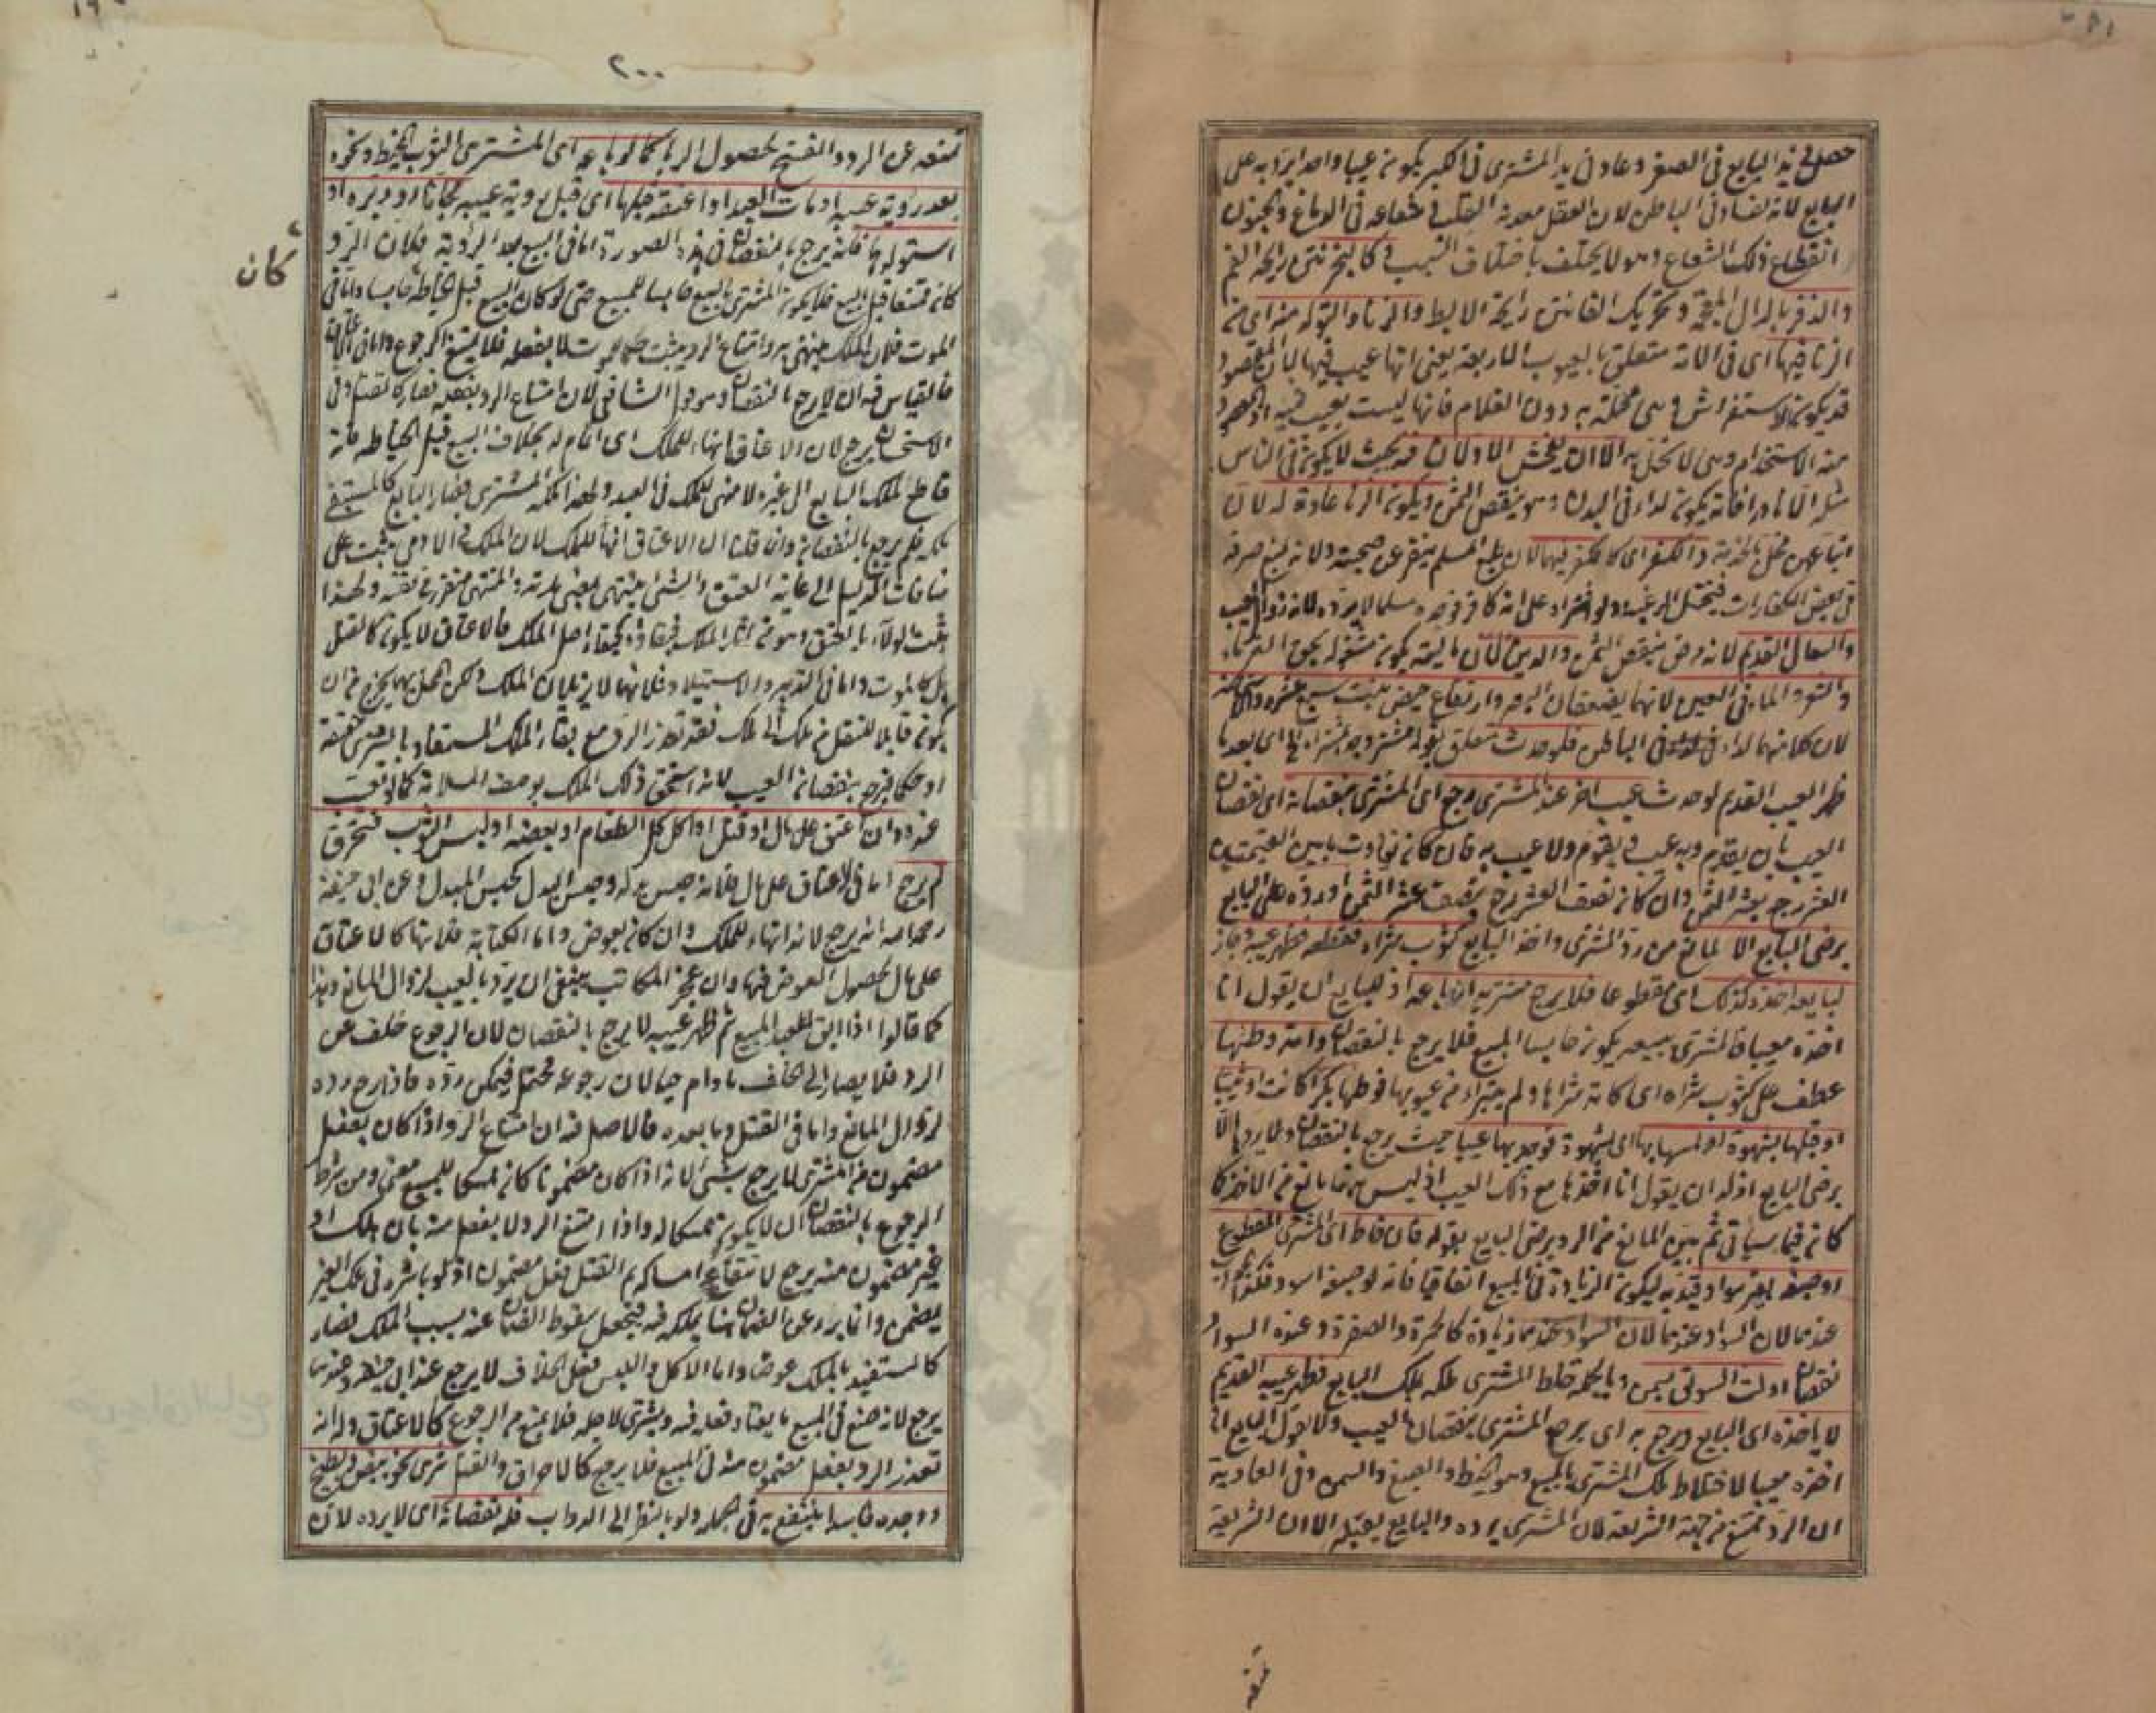 حصل في يد البايع في الصغر وعاد في يد المشترى في الكبر يكون عيبا واحدا يرد به على
البايع لانه لفساد في الباطن لان العقل معدنه القلب وشعاعه في الدماغ والجنون
انقطاع ذلك الشعاع وهو لا يختلف باختلاف السبب وكالبخر نتن رايحة الفم
والذفر بالذال المعجمة وتحريك الفا نتن رايحة الابط والزنا والتولد منه اى من
الزنا فيها اى في الامة متعلق بالعيوب الاربعة يعنى انها عيب فيها لان المقصود
قد يكون الاستفراش وهى مخلة به دون الغلام فانها ليست بعيب فيه اذ المقصود
منه الاستخدام وهى لا تخل به الا ان يفحش الاولان فيه بحيث لا يكون في الناس
مثله الا نادرا فانه يكون لداء في البدن وهو ينقص الثمن ويكون الزنا عادة له لان
اتباعهن مخل بالخدمة والكفر اى كالكفر فيهما لان طبع المسلم ينفر عن صحبته ولانه يمتنع صرفه
في بعض الكفارات فتختل الرغبة ولو شراه على انه كافر فوجده مسلما لا يرده لانه زوال العيب
والسعال القديم لانه مرض ينقص الثمن والدين لان ماليته يكون مشغوله بحق الغرماء
والشعر والماء في العين لانهما يضعفان البصر وارتفاع حيض بنت سبع عشرة والاستحاضة
لان كلا منهما لداء في الباطن فلو حدث متعلق بقوله مشتر وجد بمشتراه الخ اى بعد ما
ظهر العيب القديم لو حدث عيب اخر عند المشترى رجع اى المشترى بنقصانه اى نقصان
العيب بان يقوم وبه عيب ويقوم ولا عيب به فان كان تفاوت ما بين القيمتين
العشر رجع بعشر الثمن وان كان نصف العشر رجع بنصف عشر الثمن او رده على البايع
برضى البايع الا لمانع من رد المشترى واخذ البايع كثوب شراه فقطعه فظهر عيبه وجاز
لبايعه اخذه كذلك اى مقطوعا فلا يرجع مشتريه ان باعه اذ للبايع ان يقول انا
اخذه معيبا فالمشترى ببيعه يكون حابسا المبيع فلا يرجع بالنقصان وامة وطئها
عطف على كثوب شراه اى كامة شراها ولم يتبراء من عيوبها فوطئها بكرا كانت او ثيبا
او قبلها بشهوة او لمسها بها اى بشهوة فوجد بها عيبا حيث يرجع بالنقصان ولا يردها الا
برضى البايع اذ له ان يقول انا اخذها مع ذلك العيب اذ ليس هنا مانع من الاخذ كما
كان فيما سياتى ثم بين المانع من الرد برضى البايع بقوله فان خاط اى المشترى المقطوع
او صبغه بغير سواد قيد به ليكون الزيادة في المبيع اتفاقيا فانه لو صبغه اسود فكذا الجواب
عندهما لان السواد عندهما زيادة كالحمرة والصفرة وعنده السواد
نقصان او لت السويق بسمن وبالجملة خلط المشترى ملكه بملك البايع فظهر عيبه القديم
لا ياخذه اى البايع ويرجع به اى يرجع المشترى بنقصان العيب ولا يقول البايع انا
اخذه معيبا لاختلاط ملك المشترى بالمبيع وهو الخيط والصبغ والسمن وفى العادية
ان الرد ممتنع من جهة الشريعة لان المشترى يرده والبايع يقبله الا ان الشريعة
تمنعه
٢٠٠
تمنعه عن الرد والفسخ لحصول الربا كما لو باعه اى المشترى الثوب المخيط ونحوه
بعد رؤية عيبه او مات العبد او اعتقه قبلها اى قبل رؤية عيبه مجانا او دبره او
استولدها فانه يرجع بالنقصان في هذه الصورة اما في البيع بعد الرؤية فلان الرد
كان ممتنعا قبل البيع فلا يكون المشترى بالبيع حابسا للمبيع حتى لو كان البيع قبل الخياطة كان حابسا واما في
كان
الموت فلان الملك ينتهى به وامتناع الرد يثبت حكما للموت لا بفعله فلا يمنع الرجوع واما في الاعتاق
فالقياس فيه ان لا يرجع بالنقصان وهو قول الشافعى لان امتناع الرد بفعله فصار كالقتل وفى
الاستحسان يرجع لان الاعتاق انهاء للملك اى اتمام له بخلاف البيع قبل الخياطة فانه
قاطع لملك البايع الى غيره لا منهى للملك في العبد ولهذا ملكه المشترى فصار البايع كالمستبقى
ملكه فلم يرجع بالنقصان وانما قلنا ان الاعتاق انهاء للملك لان الملك في الادمى يثبت على
منافات الدليل الى غاية العتق والشئ ينتهى بمضى مدته والمنتهى متقرر في نفسه ولهذا
يثبت الولاء بالعتق وهو من اثار الملك فبقاؤه كبقاء اصل الملك فالاعتاق لا يكون كالقتل
بل كالموت واما في التدبير والاستيلاد فلانهما لا يزيلان الملك ولكن المحل بهما يخرج من ان
يكون قابلا للنقل من ملك الى ملك فقد تعذر الرد مع بقاء الملك المستفاد بالبيع حقيقة
او حكما فيرجع بنقصان العيب لانه استحق ذلك الملك بوصف السلامة كما لو تعيب
عنده وان اعتق على مال او قتل او اكل كل الطعام او بعضه او لبس الثوب فتخرق
لم يرجع اما في الاعتاق على مال فلانه حبس بدله وحبس البدل كحبس المبدل وعن ابى حنيفة
رحمه الله انه يرجع لانه انهاء للملك وان كان بعوض واما الكتابة فلانها كالاعتاق
على مال لحصول العوض فيها وان عجز المكاتب ينبغى ان يرد بالعيب لزوال المانع وهذا
كما قالوا اذا ابق العبد المبيع ثم ظهر عيبه لا يرجع بالنقصان لان الرجوع خلف عن
الرد فلا يصار الى الخلف ما دام حيا لان رجوعه محتمل فيمكن رده فاذا رجع رده
لزوال المانع واما في القتل وما بعده فالاصل فيه ان امتناع الرد اذا كان بفعل
مضمون من المشترى لا يرجع بشئ لانه اذا كان مضمونا كان ممسكا للمبيع معنى ومن شرط
الرجوع بالنقصان ان لا يكون ممسكا له واذا امتنع الرد لا بفعل منه بان هلك او
غير مضمون منه يرجع لانتفاء امساكه ثم القتل فعل مضمون اذ لو باشره في ملك الغير
يضمن وانما برء عن الضمان هنا بملكه فيه فيجعل سقوط الضمان عنه بسبب الملك فصار
كالمستفيد بالملك عوضا واما الاكل واللبس فعلى الخلاف لا يرجع عند ابى حنيفة وعندهما
يرجع لانه صنع في المبيع ما يعتاد فعله فيه ويشترى لاجله فلا يمنع من الرجوع كالاعتاق وله انه
تعذر الرد بفعل مضمون منه في المبيع فلا يرجع كالاحراق والقتل شرى نحو بيض وبطيخ
ووجده فاسدا ينتفع به في الجملة ولو بالنظر الى الدواب فله نقصانه اى لا يرده لان